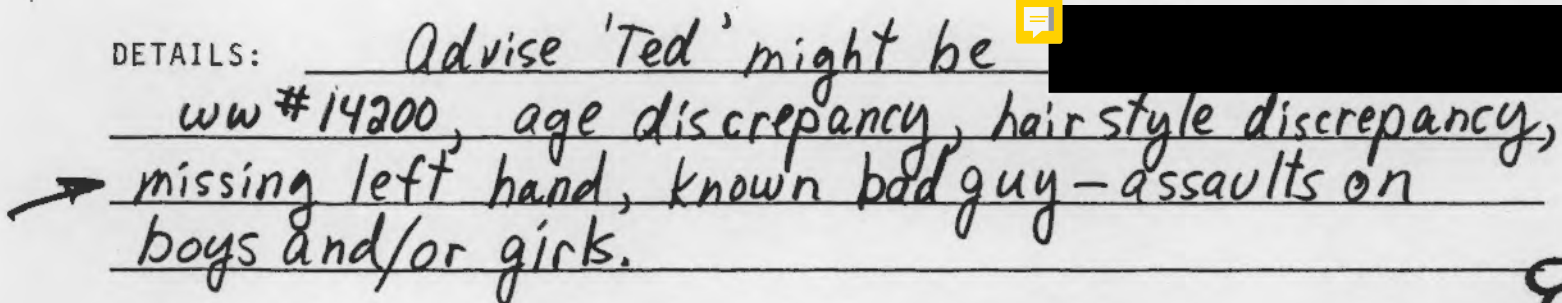 DETAILS: Advise 'Ted' might be
ww #14200, age discrepancy, hair style discrepancy,
missing left hand, known bad guy – assaults on
boys and/or girls.